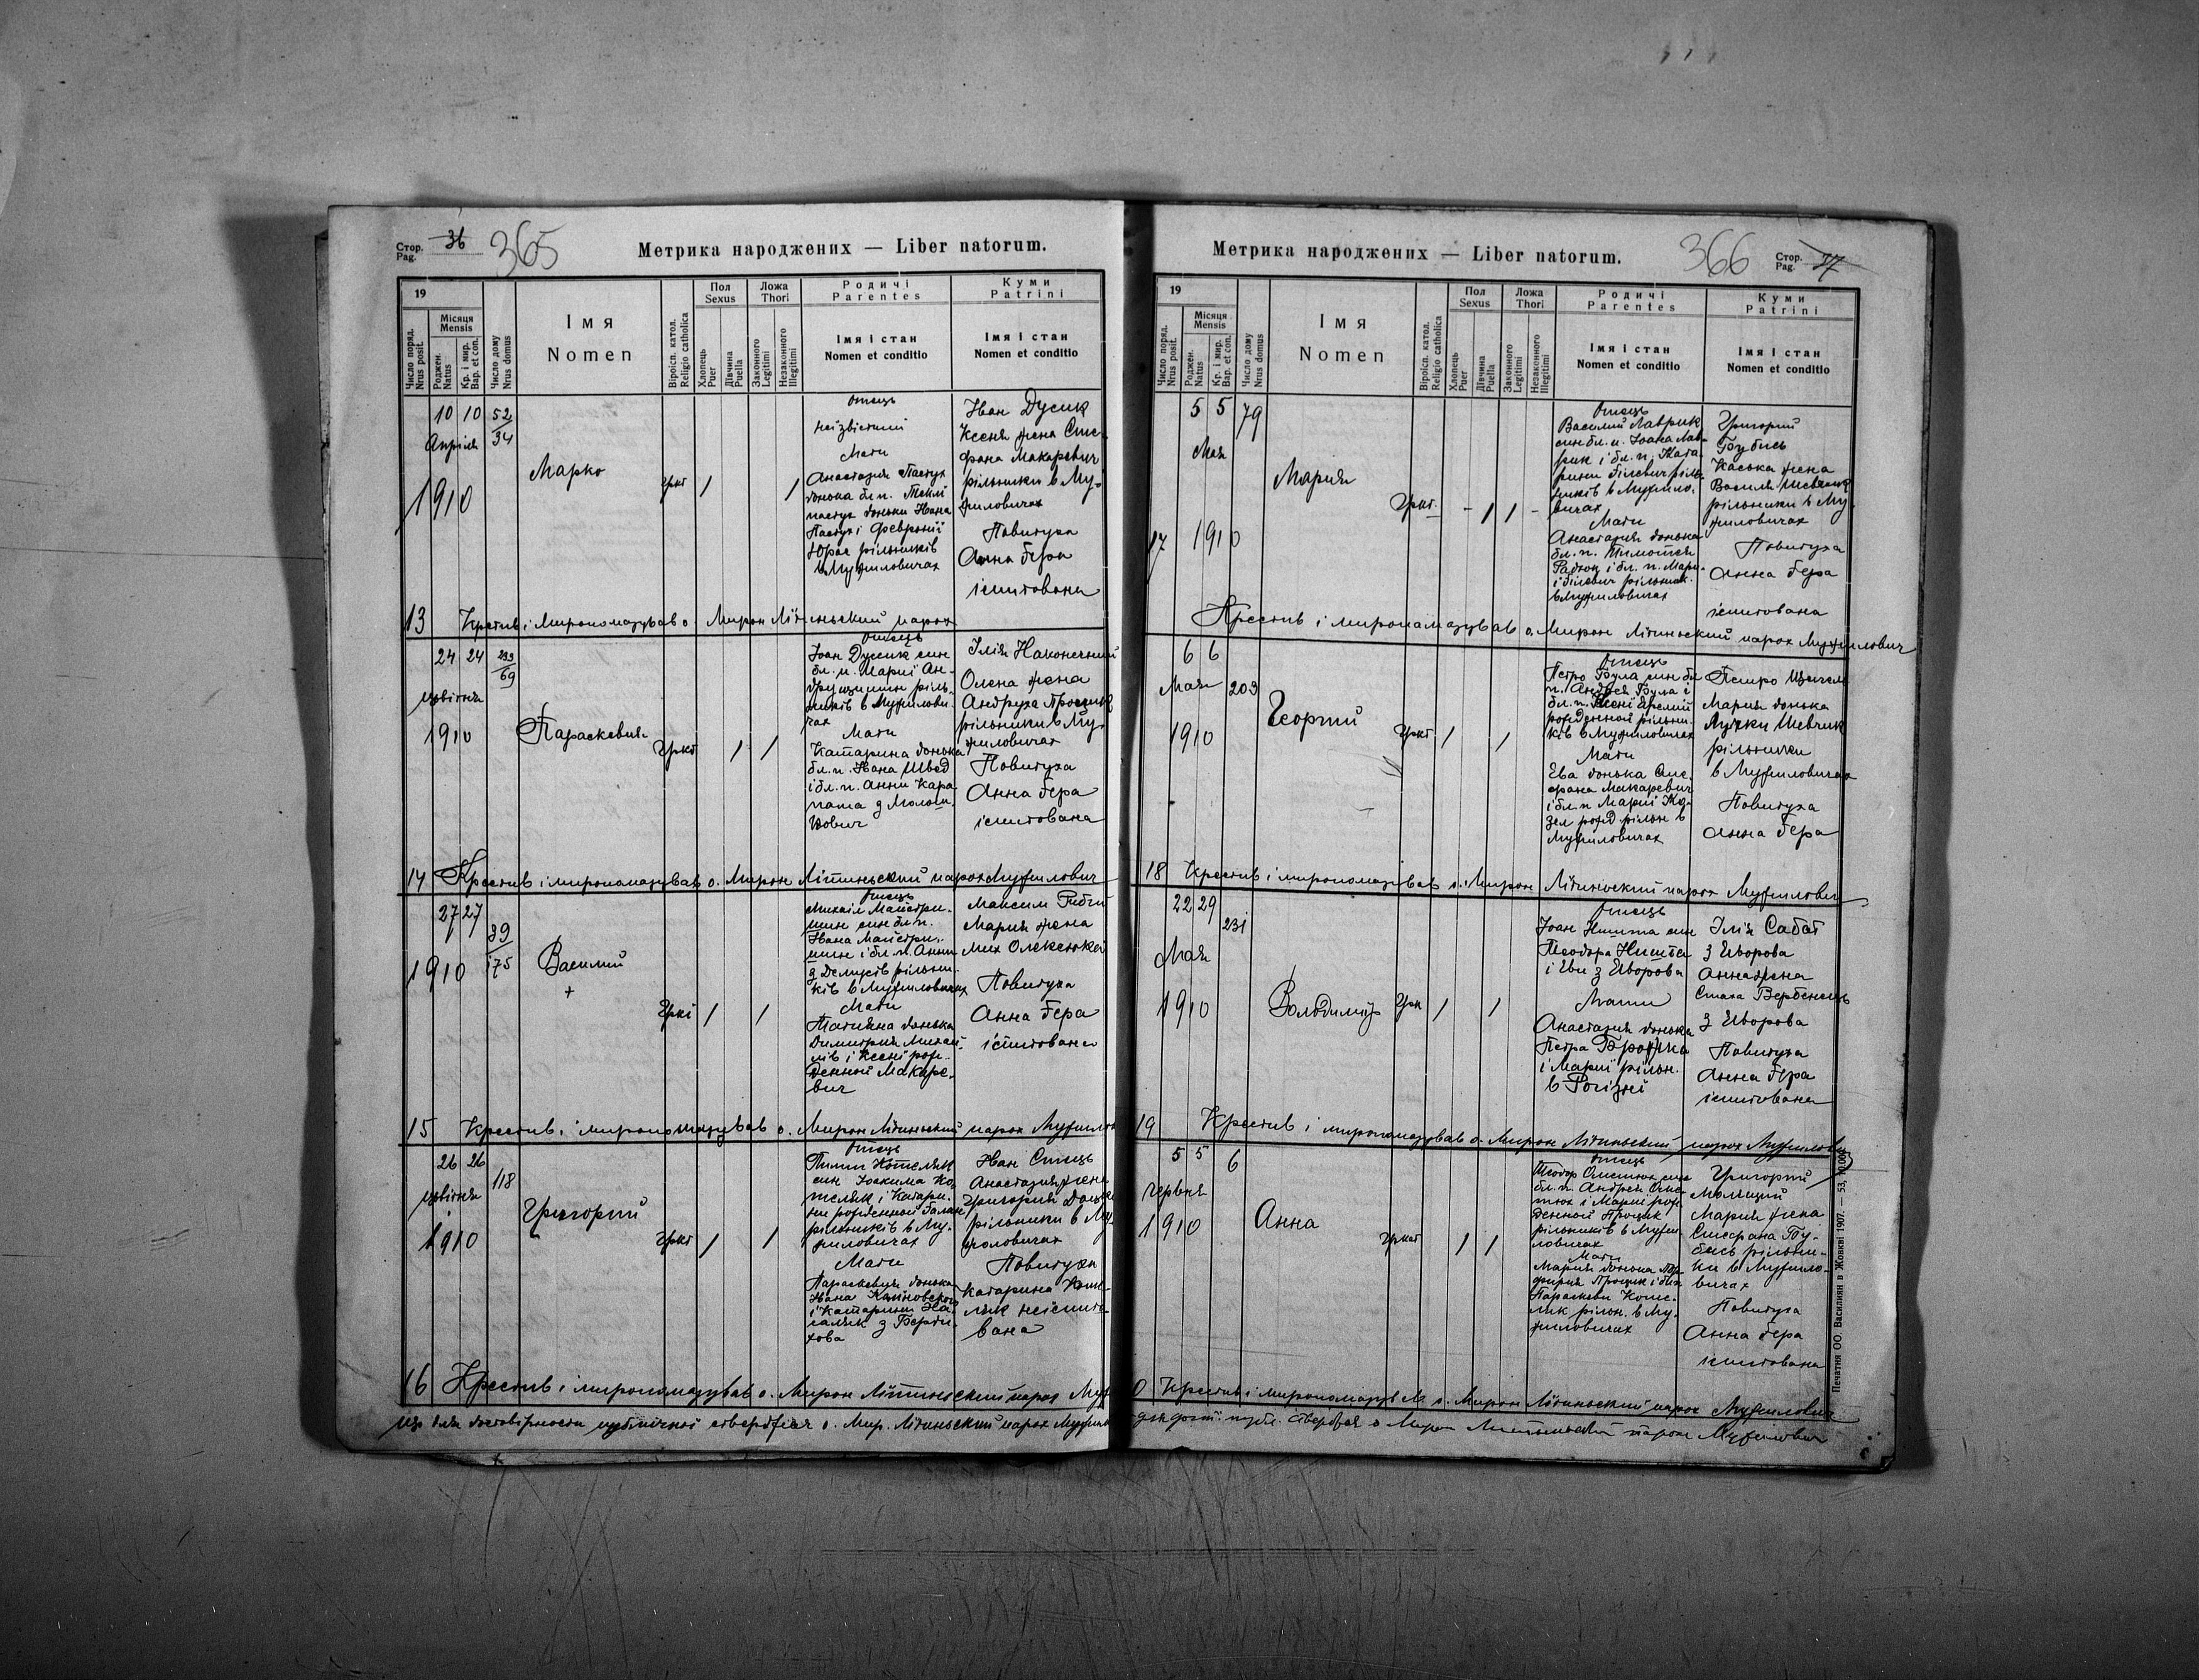 Стор. Pag. 36 365
Метрика народжених — Liber natorum.
19
Число поряд. Nrus posit.
Місяця Mensis
Роджен. Natus
Кр. і мир. Bap. et con.
Число дому Nrus domus
Імя Nomen
Віроісп. катол. Religio catholica
Пол Sexus
Хлопець Puer
Дівчина Puella
Ложа Thori
Законного Legitimi
Незаконного Illegitimi
Родичі Parentes
Імя і стан Nomen et conditio
Куми Patrini
Імя і стан Nomen et conditio
10 10 52/34
Апріля
1910
Марко
гркт / /
Отець
неізвістний
Мати
Анастазия Пастух
донька бл. п. Теклі
пастух доньки Ивана
Пастух і Февронії
Юрах рільників
в Мужиловичах
Иван Дусик
Ксеня жена Сте-
фана Макаревич
рільники в Му-
жиловичах
Повитуха
Анна Гера
іспитована
13 Крестив і миропомазував о. Мирон Літиньский парох
24 24 233/69
цвітня
1910
Параскевия
Гркт / /
Отець
Іоан Дусик син
бл. п. Марії Ан-
друшишин ріль-
ників в Мужилови-
чах
Мати
Катарина донька
бл. п. Ивана Швед
і бл. п. Анни Кара-
пата з Молош-
кович
Ілія Наконечний
Олена жена
Андруха Процик
рільники в Му-
жиловичах
Повитуха
Анна Гера
іспитована
14 Крестив і миропомазував о. Мирон Літиньский парох Мужилович
27 27 39/175
1910
Василий
+
Гркт / /
Отець
Михаіл Майстри-
шин син бл. п.
Ивана Майстри-
шин і бл. п. Анни
з Демусів рільни-
ків в Мужиловичах
Мати
Татияна донька
Димитрия Михай-
лів і Ксені рож-
денной Макаре-
вич
Максим
Мария жена
Мих Олексюкей
Повитуха
Анна Гера
іспитована
15 Крестив і миропомазував о. Мирон Літиньский парох Мужилов
26 26 118
цвітня
1910
Григорий
Гркт / /
Отець
Пилип Котеляк
син Іоакима Ко-
теляк і Катари-
ни рожденной Балан
рільників в Му-
жиловичах
Мати
Параскевия донька
Ивана Калиновского
і Катарини На-
галяк з Берди-
хова
Иван Стець
Анастазия жена
Григория Доцяк
рільники в Му-
жиловичах
Повитуха
Катарина Коте-
ляк неіспито-
вана
16 Крестив і миропомазував о. Мирон Літиньский парох Муж
Що для достовірности публичной стверджає о. Мир. Літиньский парох Мужил
Метрика народжених — Liber natorum.
366 Стор. Pag. 37
19
Число поряд. Nrus posit.
Місяця Mensis
Роджен. Natus
Кр. і мир. Bap. et con.
Число дому Nrus domus
Імя Nomen
Віроісп. катол. Religio catholica
Пол Sexus
Хлопець Puer
Дівчина Puella
Ложа Thori
Законного Legitimi
Незаконного Illegitimi
Родичі Parentes
Імя і стан Nomen et conditio
Куми Patrini
Імя і стан Nomen et conditio
5 5 79
Мая
17 1910
Мария
Гркт. - / / -
Отець
Василий Лаврик
син бл. п. Іоана Лав-
рик і бл. п. Ката-
рини Білевичріль-
ників в Мужило-
вичах
Мати
Анастазия донька
бл. п. Тимотея
Радюк і бл. п. Мари-
і Білевич рільник.
в Мужиловичах
Григорий
Бубись
Каська жена
Василя Шевчик
рільники в Му-
жиловичах
Повитуха
Анна Гера
іспитована
Крестив і миропомазував о. Мирон Літиньский парох Мужилович
6 6
Мая 203
1910
Георгий
Гркт / /
Отець
Петро Була син бл
п. Андрея Була і
бл. п. Ксені Яремій
рожденной рільни-
ків в Мужиловичах
Мати
Ева донька Сте-
фана Макаревич
і бл. п. Марії Ко-
зел рожд рільн в
Мужиловичах
Петро
Мария донька
Луцки Шевчик
рільники
в Мужиловичах
Повитуха
Анна Гера
18 Крестив і миропомазував о. Мирон Літиньский парох Мужилович
22 29 231
Мая
1910
Володимир
Грк / /
Отець
Іоан Ништа син
Теодора Ништа
і Еви з Яворова
Мати
Анастазия донька
Петра Бродяка
і Марії рільн.
в Рогізні
Ілія Сабат
з Яворова
Анна жена
Стаха Вербенець
з Яворова
Повитуха
Анна Гера
іспитована
19 Крестив і миропомазував о. Мирон Літиньский парох Мужилович
5 5 6
червня
1910
Анна
гркат / /
Отець
Теодор Олистюх син
бл. п. Андрея Олис-
тюх і Марії рож-
денной Процик
рільників в Мужи-
ловичах
Мати
Мария донька Пор-
фирия Процик і бл. п.
Параскеви Коте-
ляк рільн. в Му-
жиловичах
Григорий
Мария жена
Стефана Бу-
бись рільни-
ки в Мужило-
вичах
Повитуха
Анна Гера
іспитована
0 Крестив і миропомазував о. Мирон Літиньский парох Мужилович
для дост. публ. стверджає о Мирон Литиньский парох Мужилович
Печатня ОО. Василиян в Жовкві 1907. — 53, 10.000